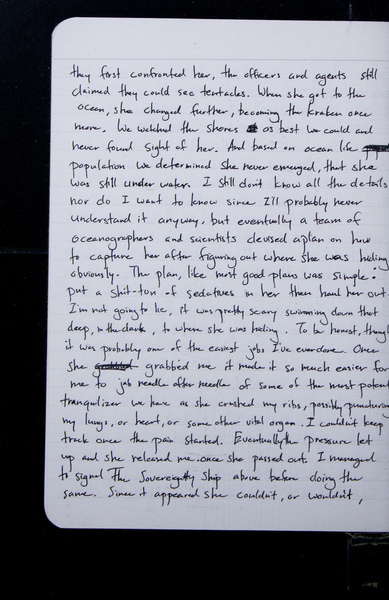 they first confronted her, the officers and agents still
claimed they could see tentacles. When she got to the
ocean, she changed further, becoming the kraken once
more. We watched the shores as best we could and
never found sight of her. And based on ocean life
population we determined she never emerged, that she
was still under water. I still don't know all the details
nor do I want to know since I'll probably never
understand it anyway, but eventually a team of
oceanographers and scientists devised a plan on how
to capture her after figuring out where she was hiding
obviously. The plan, like most good plans was simple:
put a shit-ton of sedatives in her then haul her out.
I'm not going to lie, it was pretty scary swimming down that
deep, in the dark, to where she was hiding. To be honest, though
it was probably one of the easiest jobs I've ever done. Once
she grabbed me it made it so much easier for
me to jab needle after needle of some of the most potent
tranquilizer we have as she crushed my ribs, possibly puncturing
my lungs, or heart, or some other vital organ. I couldn't keep
track once the pain started. Eventually the pressure let
up and she released me once she passed out. I managed
to signal The Sovereignty ship above before doing the
same. Since it appeared she couldn't, or wouldn't,